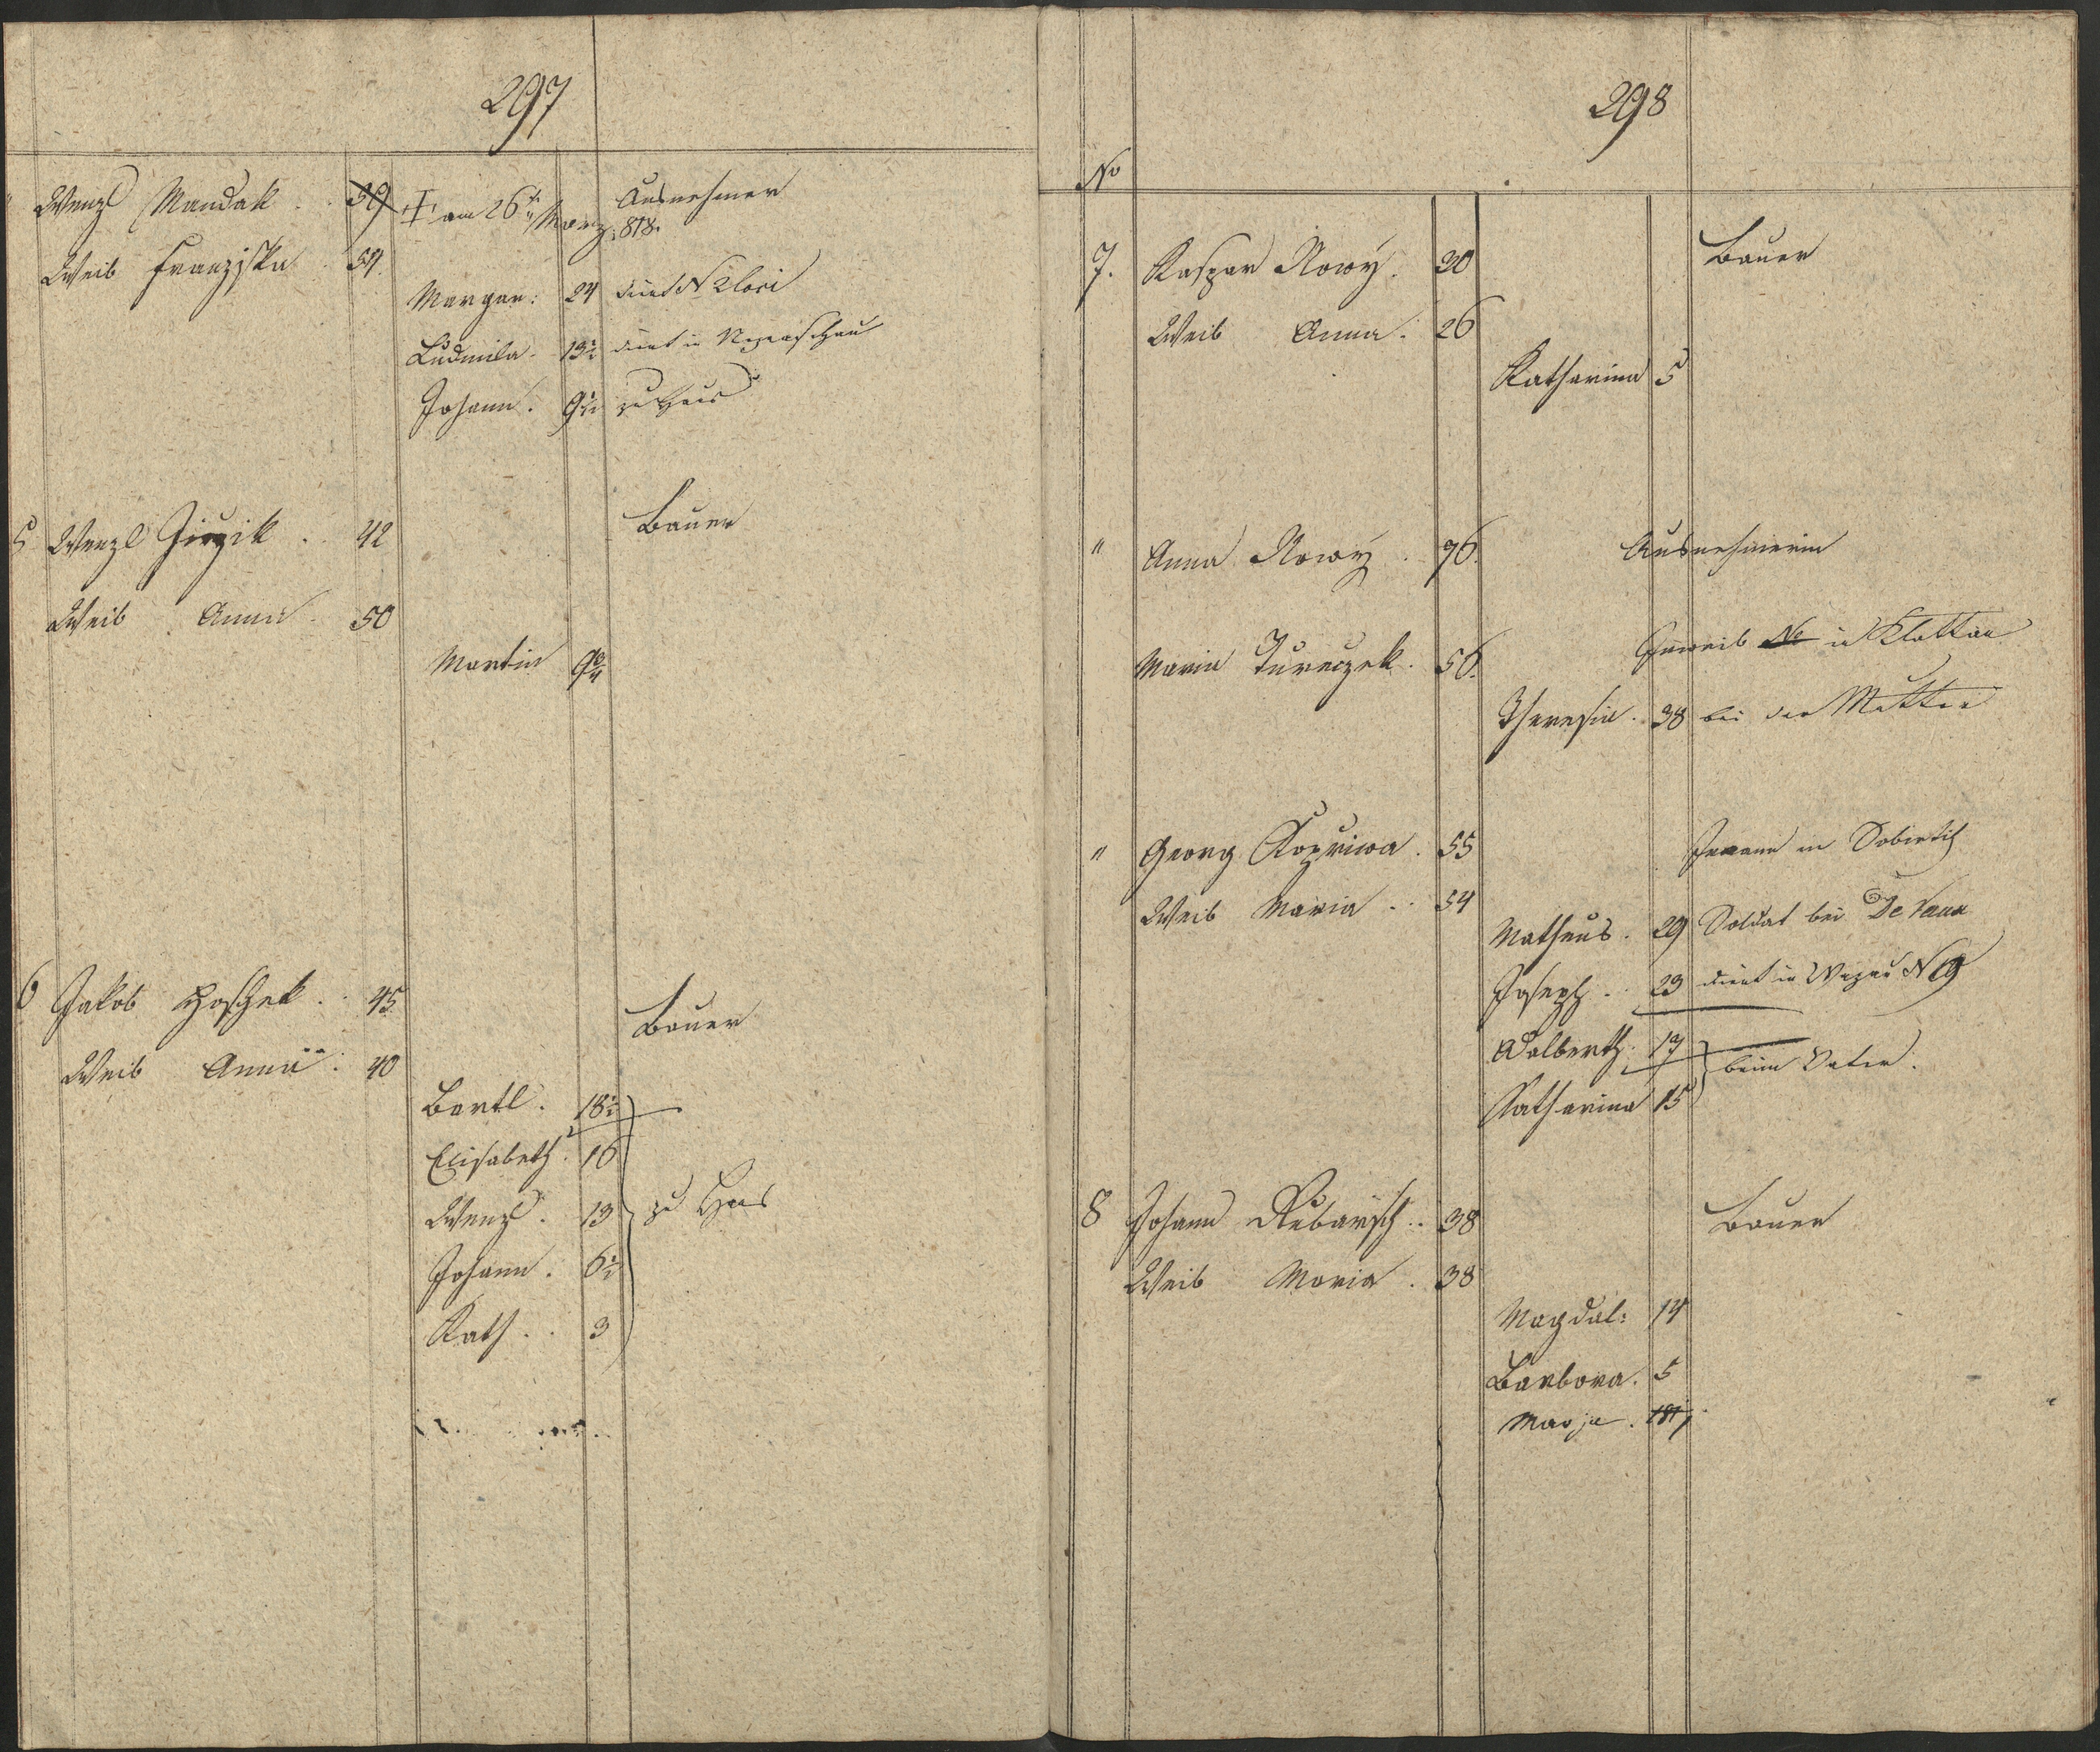 297
" Wenzl Mandak . . 39 ‡ am 26t März 818. Ausnehmer
Weib Franziska . 54.
Margar: 24 dient N 2 loci
Ludmila . 13½ dient in
Johann . 9½ zu Haus
5 Wenzl Jirzik . . 42 Bauer
Weib Anna . 50
Martin 9¾
6 Jakob Hoschek . . 45 Bauer
Weib Anna . 40
Bartl . 18½
Elisabeth . 16
Wenzl . 13 zu Haus
Johann . 6½
Kath . . 3
298
No
7. Kaspar Nowy . 30 Bauer
Weib Anna . 26
Katharina 5
" Anna Nowy . 76. Ausnehmerin
Maria Tureczek . 56. Inweib No in Klattau
Theresia . 38 bei der Mutter
" Georg Kopriwa . 55 Inmann in
Weib Maria . . 54
Matheus . 29 Soldat bei De Vaux
Joseph . . 23 dient in N 9
Adalberth . 17 beim Vater.
Katharina 15
8 Johann Rubäsch . . 38 Bauer
Weib Maria . 38
Magdal: 14
Barbora . 5
Marja . 1817